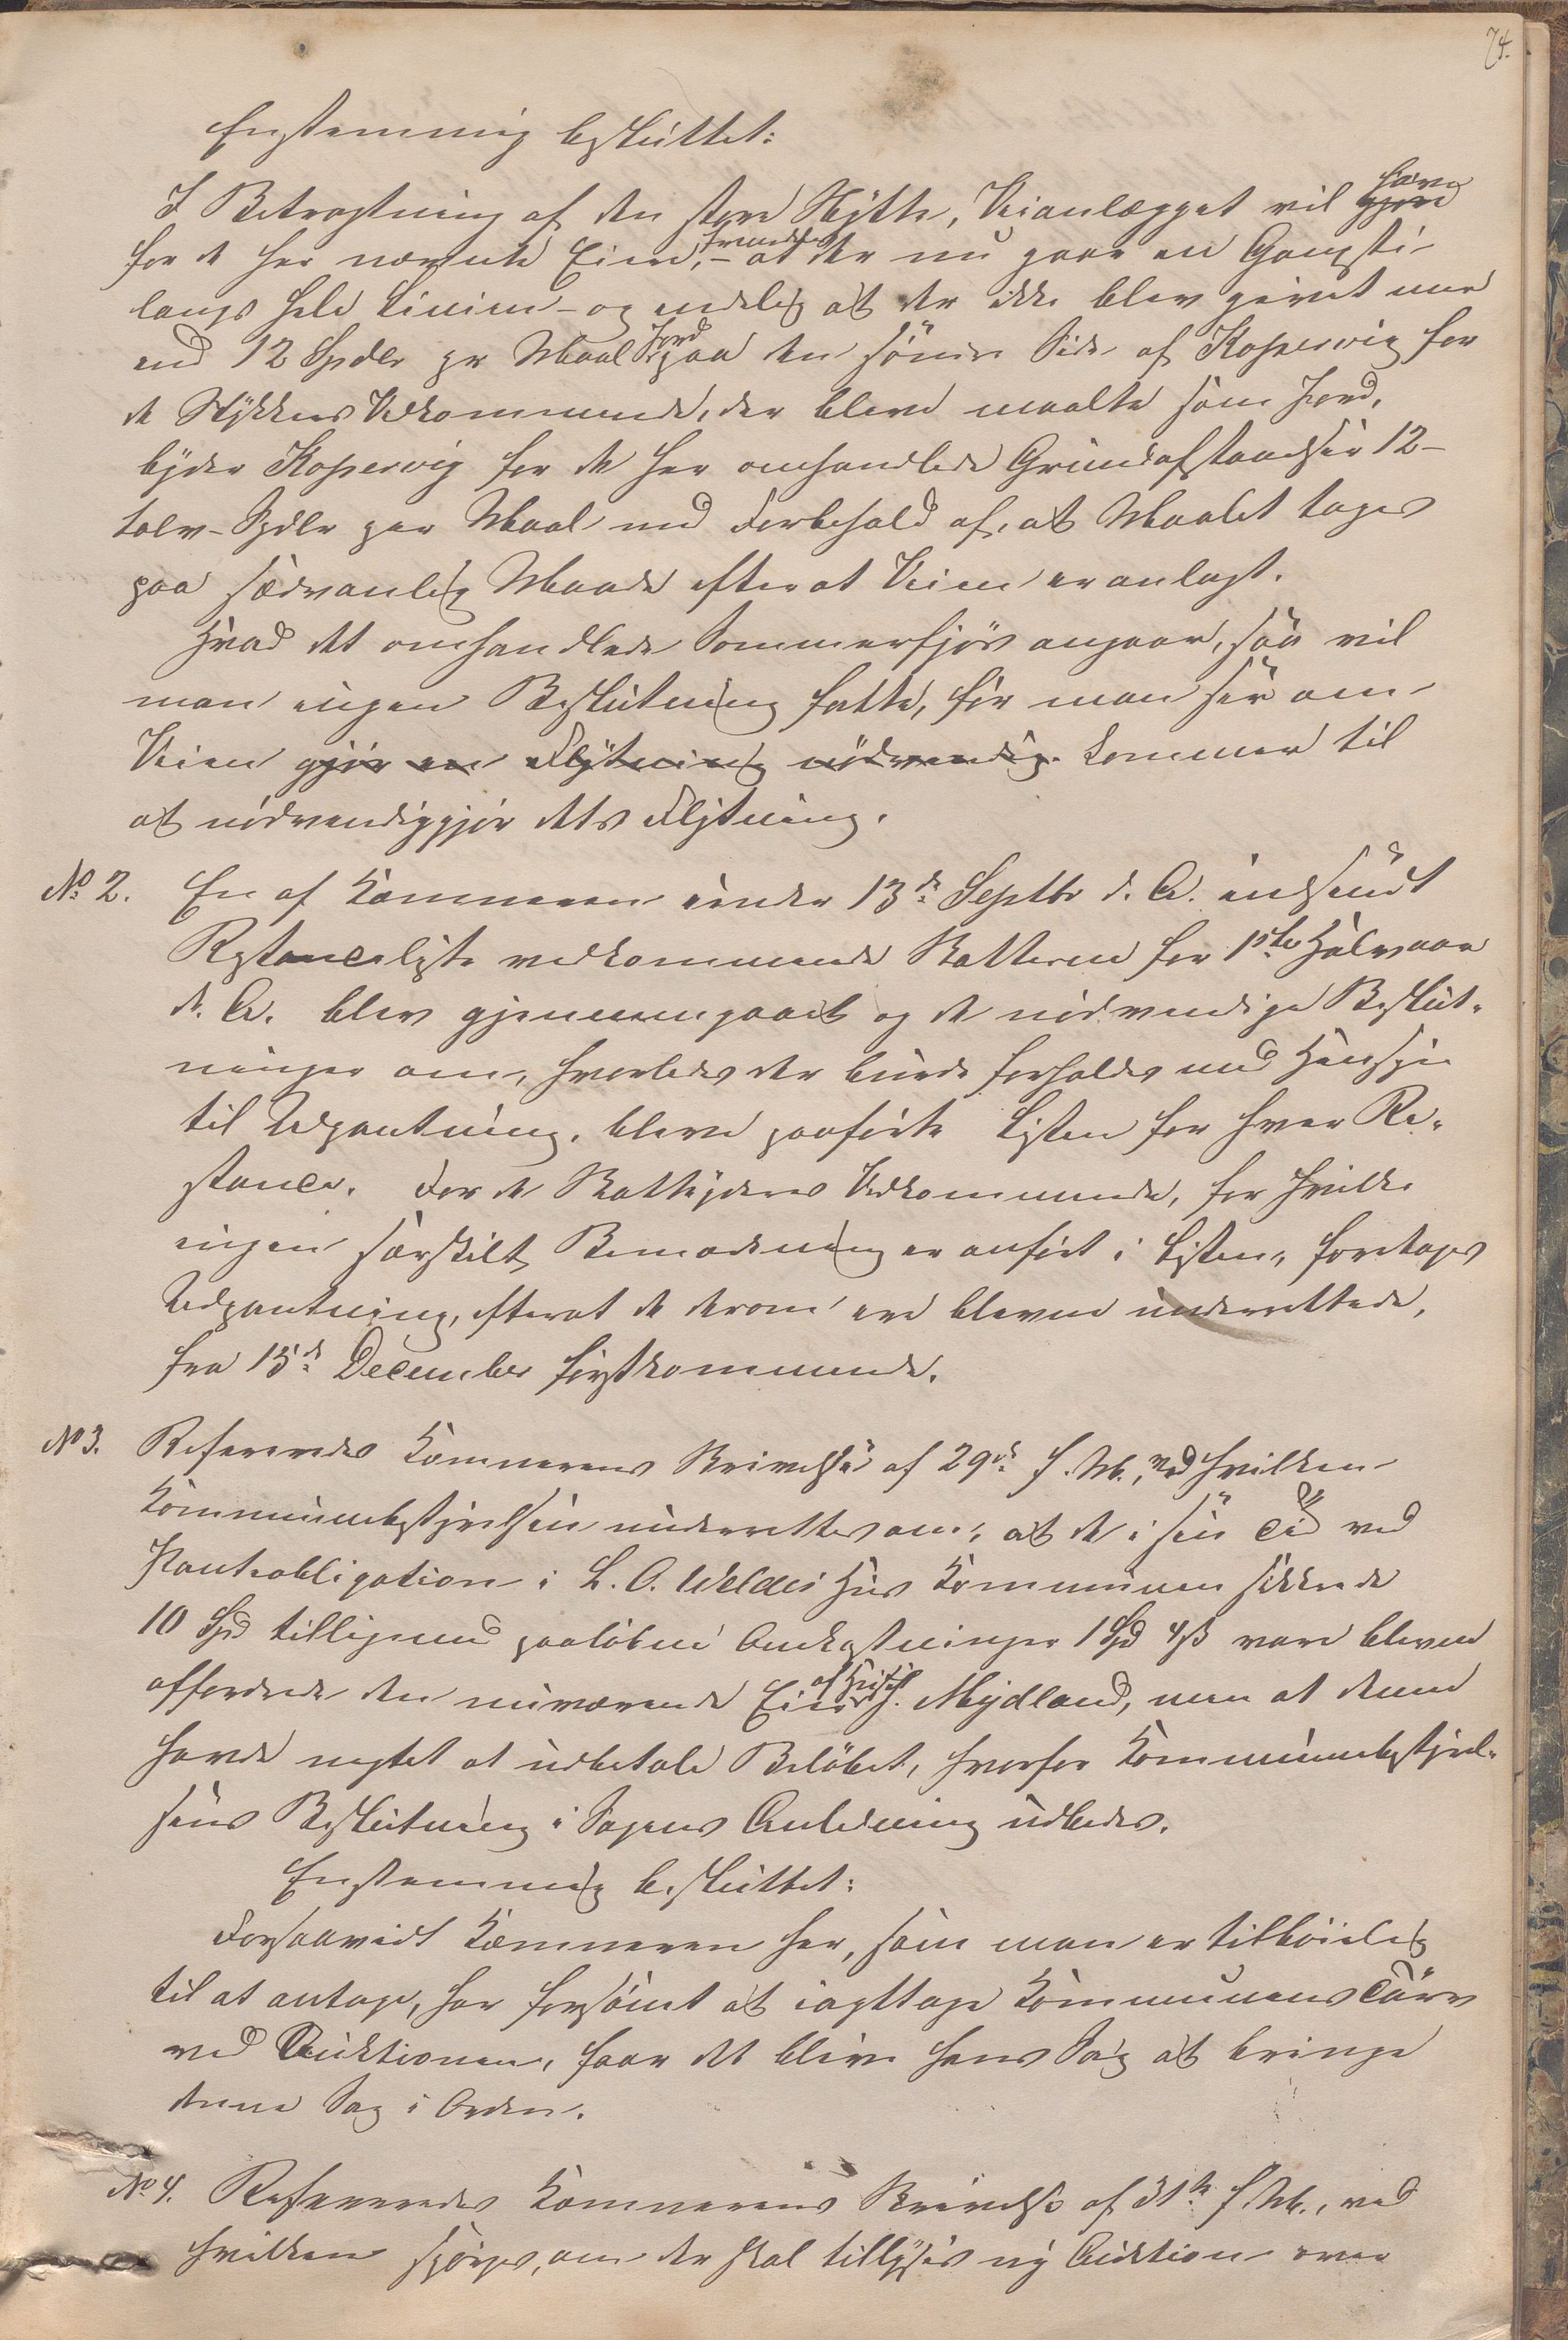 74.
Enstemmig besluttet:
I Betragtning af den store Nytte, Veianlægget vil have gjøre
for de her nævnte Eiere, fremdeles at der nu gaar en Gangsti
langs hele Linien – og endelig at der ikke blev givet mere
end 12 Spdlr pr Maal Jord paa den søndre Side af Kopervig for
de Stykkers Vedkommende, der bleve maalte som Jord,
byder Kopervig for de her omhandlede Grundafstaaelser 12 –
tolv – Spdlr per Maal med Forbehold af, at Maalet tages
paa sædvanlig Maade efterat Veien er anlagt.
Hvad det omhandlede Sommerfjøs angaar, saa vil
man ingen Beslutning fatte, før man ser om
Veien gjør en Flytning nødvendig. kommer til
at nødvendiggjør dets Flytning.
No 2. En af Kæmneren under 13de Septbr d. A. indsendt
Restanceliste vedkommende Skatterne for 1ste Halvaar
d. A. blev gjennemgaaet og de nødvendige Beslut-
ninger om, hvorledes der burde forholdes med Hensyn
til Udpantning, bleve paaførte Listen for hver Re-
stance. For de Skatteyderes Vedkommende, for hvilke
ingen særskilt Bemærkning er anført i Listen, foretages
Udpantning, efterat de derom ere blevne underrettede,
fra 15de December førstkommende.
No 3. Refereredes Kæmnerens Skrivelse af 29de f. M., ved hvilken
Kommunebestyrelsen underrettes om, at de i sin Tid ved
Panteobligation i L. O. Veldes Hus Kommunen sikkrede
10 Spd tilligemed paaløbne Omkostninger 1 Spd 4 ß vare blevne
affordrede den nuværende Eier af Huset H. Mydland, men at denne
havde negtet at udbetale Beløbet, hvorfor Kommunebestyrel-
sens Beslutning i Sagens Anledning udbedes.
Enstemmig besluttet:
Forsaavidt Kæmneren her, som man er tilbøielig
til at antage, har forsømt at iagttage Kommunens Tarv
ved Auktionen, faar det blive hans Sag at bringe
denne Sag i Orden.
No 4. Refereredes Kæmnerens Skrivelse af 31te f. M., ved
hvilken spørges, om der skal tillyses ny Auktion over